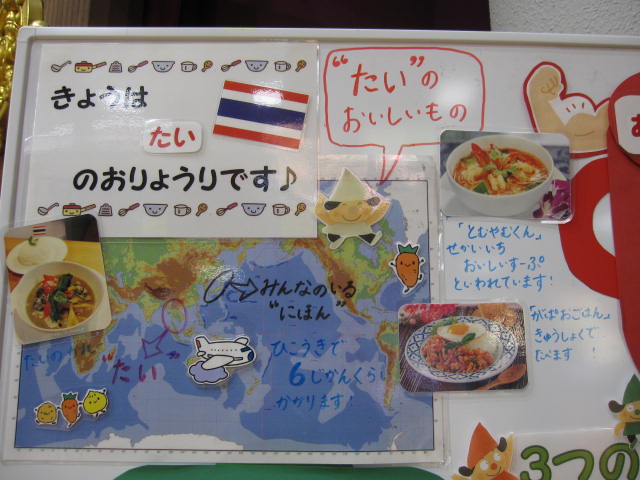 きょうは
たい
のおりょうりです♪
“たい”の
おいしいもの
「とむやむくん」
せかいいち
おいしいすーぷ
といわれています!
みんなのいる
“にほん”
「がぱおごはん」
きゅうしょくで
たべます!
“たい”
ひこうきで
6じかんくらい
かかります!
3つの